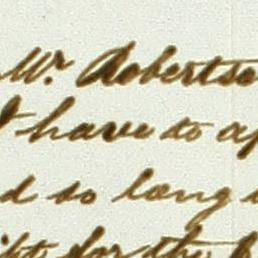 Mr. Robertso
I have to ap
d so long
for the